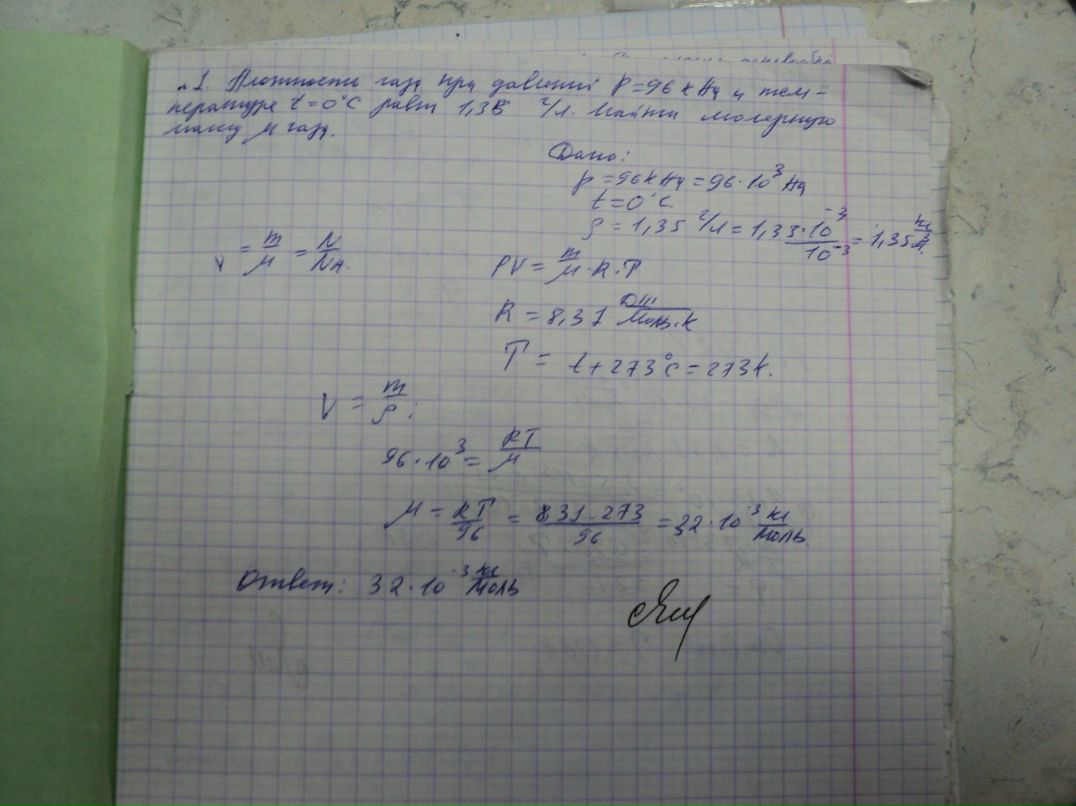 1. Плотность газа при давлении P=96 кПа и тем-
пературе t=0°C равна 1,35 г/л. Найти молярную
массу μ газа.
Дано:
p=96кПа=96·10³ Па
t=0°C
ρ=1,35 г/л=1,35·10⁻³/10⁻³=1,35 кг/м³.
ν=m/μ=N/Nа.
PV=m/μ·R·T
R=8,31 Дж/моль·К
T=t+273°C=273К.
V=m/ρ;
96·10³=RT/μ
μ=RT/96=831·273/96=32·10⁻³ кг/моль.
Ответ: 32·10⁻³ кг/моль